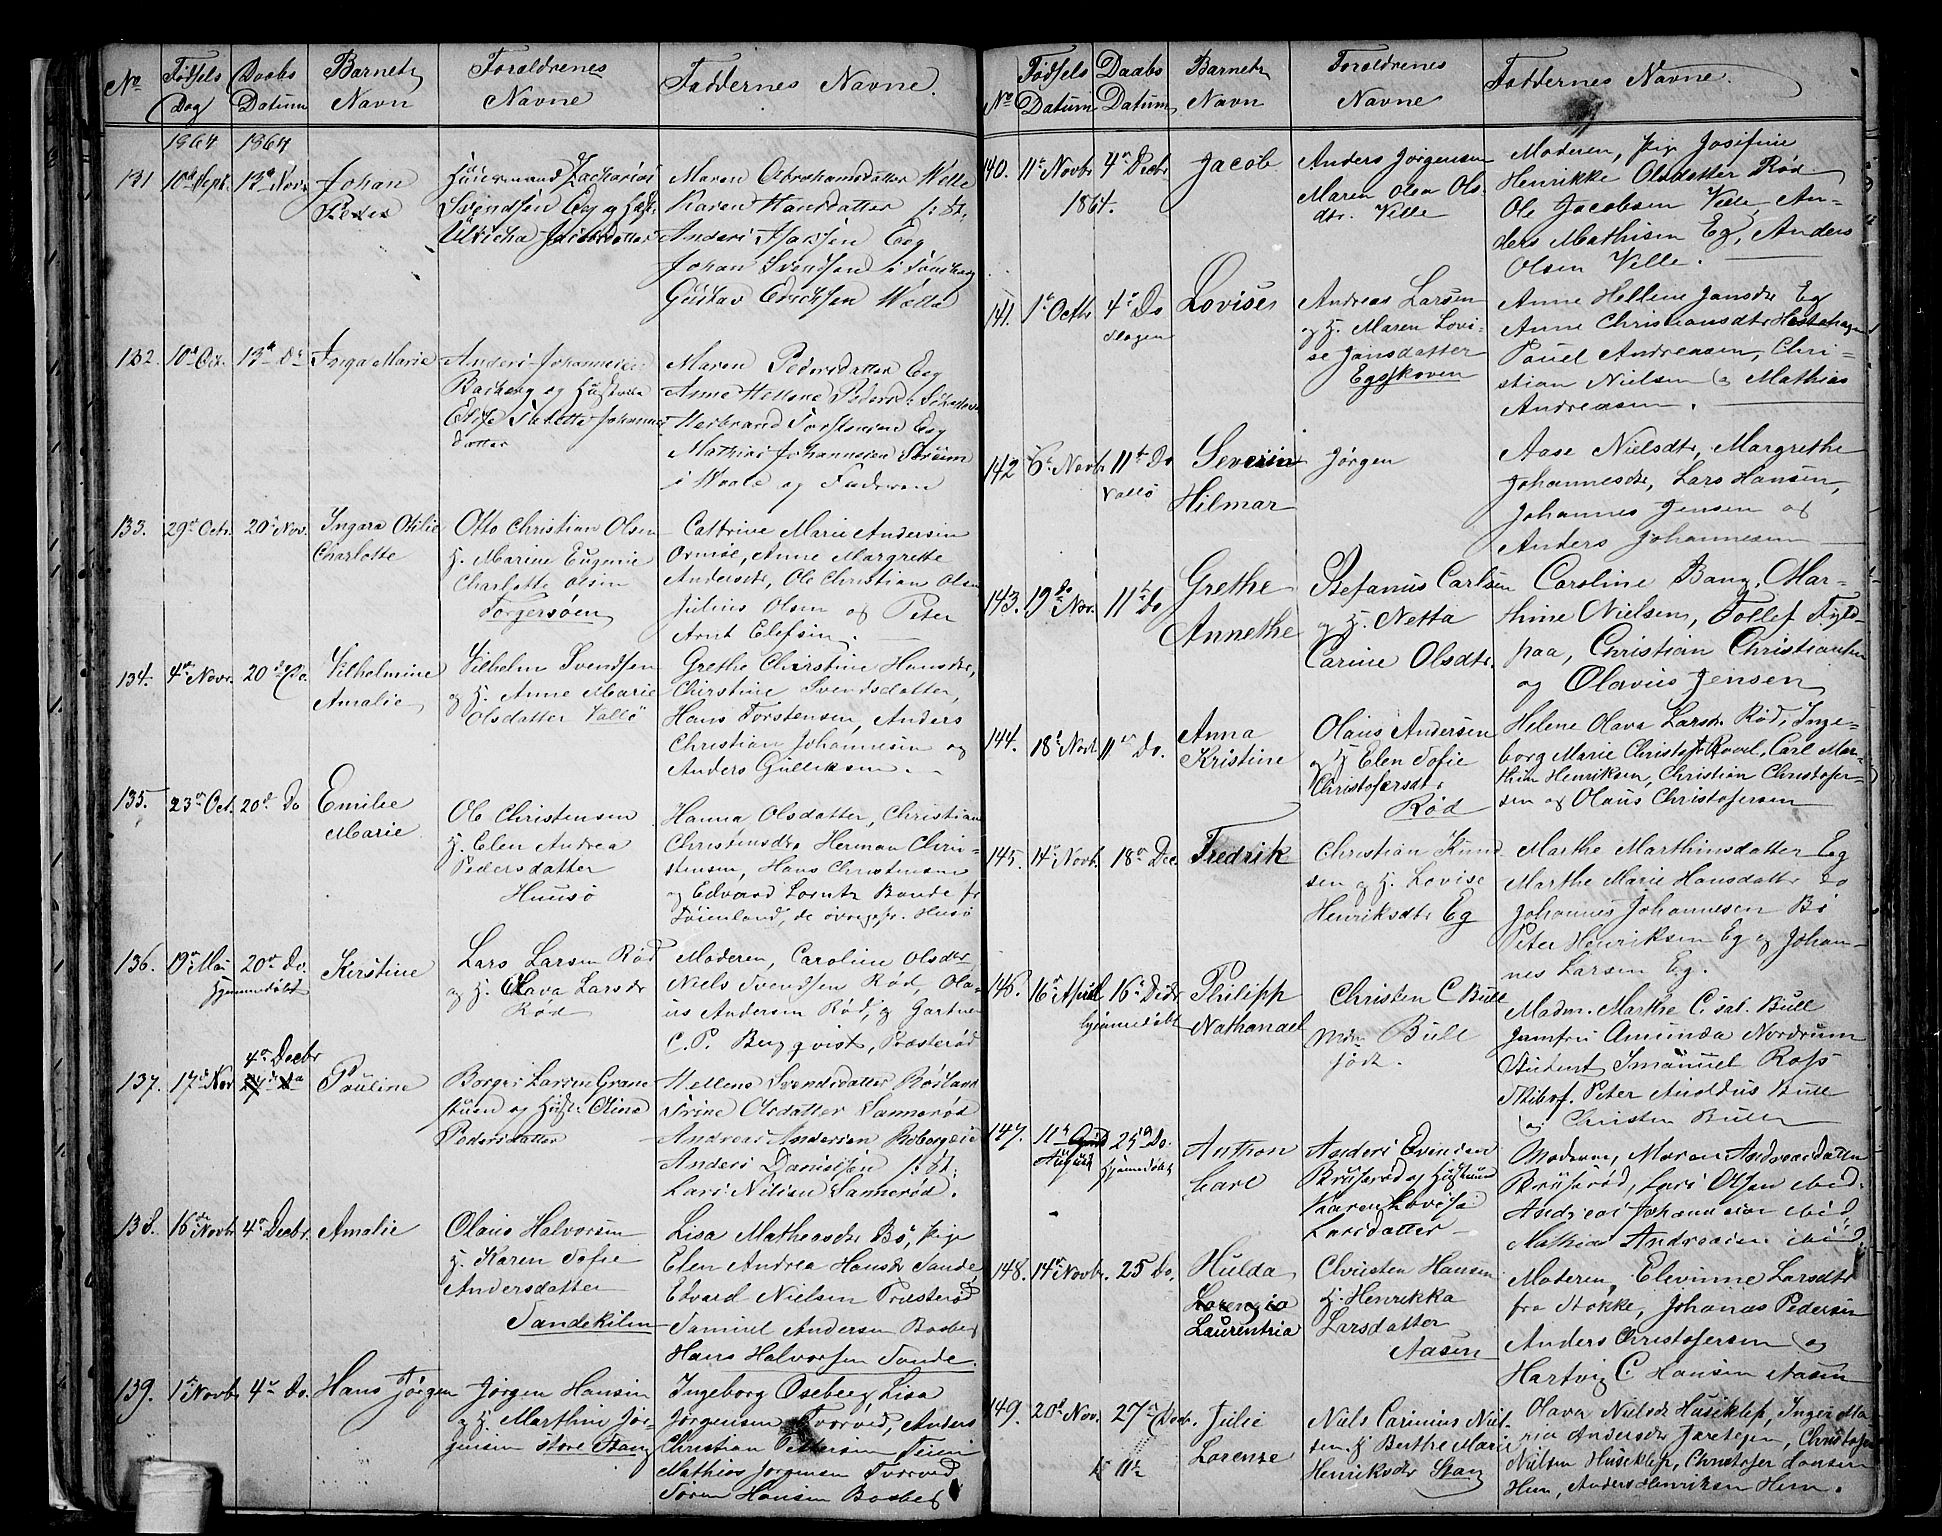 No
Fødsels Dag
Daabs Datum
Barnets Navn
Forældrenes Navne
Faddernes Navne.
1864 1864
131 10de Sept. 13de Nov. Johan Peder
Huusmand Zacharias
Svendsen Eeg og Hust.
Ulricha Jacobsdatter
Maren Abrahamsdatter Welle
Karen Hansdatter
Anders Isaksen Eeg
Johan Svendsen i Tønsberg
Gustav Erichsen Welle
132. 10de Oct. 13de Do Inga Marie
Anders Johannesen
Basberg og Hustrue
Else Johannes-
datter
Maren Pedersdatter Eeg
Anne Hellene Pedersd.
Herbrand Torstensen Eeg
Mathias Johannesen
i Waale og Faderen
133. 29de Octr. 20de Nov. Ingara Otilie
Charlotte
Otto Christian Olsen
H. Marine Eugenie
Charlotte Olsen
Torgersøen
Cathrine Marie Andersen
Ormøe, Anne Margrette
Andersdtr, Ole Christian Olsen
Julius Olsen og Peter
Arnt Elefsen.
134. 4de Novr. 20de Do. Vilhelmine
Amalie
Vilhelm Svendsen
og H. Anne Marie
Olsdatter Vallø
Grethe Christine Hansdtr,
Christine Svendsdatter,
Hans Torstensen, Anders
Christian Johannesen og
Anders Gulliksen.
135. 23de Oct. 20de Do Emilie
Marie
Ole Christensen
H. Elen Andrea
Pedersdatter
Huusø
Hanna Olsdatter, Christian
Christensdtr Herman Chri-
stensen, Hans Christensen
og Edvard Lorntz Bonde fr
Føienland, de øvrige fr. Husø
136. 19de Mai 20de Do. Kirstine
hjemmedøbt
Lars Larsen Rød
og H. Olava Larsdr
Rød
Moderen, Caroline Olsdtr
Niels Svendsen Rød, Ola-
us Andersen Rød, og Gartner
C. P. Bergqvist, Præsterød
137. 17de Nov 4de Decbr Pauline
Borger Larsen Grane-
stuen og Hust. Oline
Pedersdatter
Hellene Svendsdatter
Trine Olsdatter Sannerød
Andreas Andersen
Anders Danielsen
Lars Nilsen Sannerød.
138. 16de Novbr 4de Decbr. Amalie
Olaus Halvorsen
H. Karen Sofie
Andersdatter
Sandekilen
Lisa Matheasdtr Bø, Pige
Elen Andrea Hansdr Sande,
Edvard Nielsen Præsterød
Samuel Andersen Basberg
Hans Halvorsen Sande.
139. 1de Novbr 4de Do. Hans Jørgen
Jørgen Hansen
og H. Marthine Jør-
gensen store Stang
Ingeborg Oseberg, Lisa
Jørgensen Torved, Anders
Christian Pettersen
Mathias Jørgensen Torved
Søren Hansen Basberg
No
Fødsels Datum
Daabs Datum
Barnets Navn
Forældrenes Navne
Faddernes Navne.
140. 11te Novbr 4de Decbr Jacob
1864.
Anders Jørgensen
Maren Olea Ols-
dtr. Velle
Moderen, Pige Josifine
Henrikke Olsdatter Rød
Ole Jacobsen Velle, An-
ders Mathisen Eg, Anders
Olsen Velle.
141. 1de Octbr 4de Do Lovise
Slagen
Andreas Larsen
og H. Maren Lovi-
se Jansdatter
Egskoven
Anne Hellene Jansdr Eg
Anne Christiansdtr Hestehagen
Pauel Andreasen, Chri-
stian Nielsen og Mathias
Andreasen.
142 6te Novbr. 11te Do Severin
Hilmar
Vallø
Jørgen
Aase Nielsdtr, Margrethe
Johannesdr, Lars Hansen,
Johannes Jensen og
Anders Johannesen
143. 19de Nov. 11te Do Grethe
Annethe
Stefanus Carlsen
og H. Netta
Carine Olsdtr.
Caroline Bang, Mar-
thine Nielsen, Tollef Fyld-
paa, Christian Christiansen
og Olavius Jensen
144. 18de Novb. 11te Do. Anna
Kristine
Olaus Andersen
og H Elen Sofie
Christofersdtr
Rød
Helene Olava Larsdr Rød, Inge-
borg Marie Christofr Rovel, Carl Mar-
thin Henriksen, Christian Christofer-
sen og Olaus Christofersen
145. 14de Novb. 18de Dec. Fredrik
Christian Knud-
sen og H. Lovise
Henriksdtr Eg
Marthe Marthinsdatter Eg
Marthe Marie Hansdatter Do
Johannes Johannesen Bø
Peter Henriksen Eg og Johan-
nes Larsen Eg.
146. 16de April 16de Decbr Philipp
Nathanael
hjemmedøbt
Christen C Bull
Mdm. Bull
født
Madm. Marthe C. sal. Bull
Jomfru Amunda Nordrum
Student Imanuel Ross
Skibsf. Peter Anoldus Bull
og Christen Bull
147. 11te August 25de Do. Anthon
Carl
hjemmedøbt
Anders Evensen
Brüserød og Hustrue
Karen Lovise
Larsdatter
Moderen, Maren Andreasdatter
Brüserød, Lars Olsen ibid.
Andreas Johannesen ibid
Mathias Andreasen ibid.
148. 14de Novbr. 25 Do. Hulda
Lorenzia
Laurentzia
Christen Hansen
H. Henrikka
Larsdatter
Aasen
Moderen, Elevinne Larsdtr
fra Stokke, Johanes Pedersen
Anders Christofersen og
Hartvig C Hansen Aasen
149. 20de Nov. 27de Decb. Julie
Lorense
Niels Carinius Niel-
sen. H Berthe Marie
Henriksdr Stang
Olava Nielsdr Husiklep, Inger Ma-
ria Andersdr Jaretegen, Christofer
Nielsen Husiklep, Christofer Hansen
Hem, Anders Henriksen Hem.